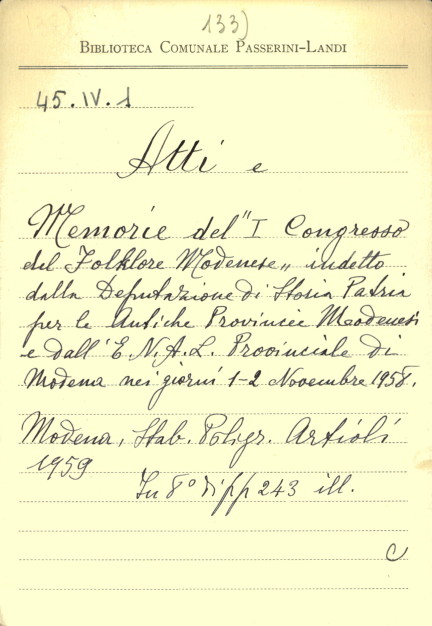 133)
BIBLIOTECA COMUNALE PASSERINI-LANDI
45.IV.1
Atti e
Memorie del "I Congresso
del Folklore Modenese„ indetto
dalla Deputazione di Storia Patria
per le Antiche Provincie Modenesi
e dall'E.N.A.L. Provinciale di
Modena nei giorni 1-2 Novembre 1958.
Modena, Stab. Poligr. Artioli
1959
In 8° di pp 243 ill.
C